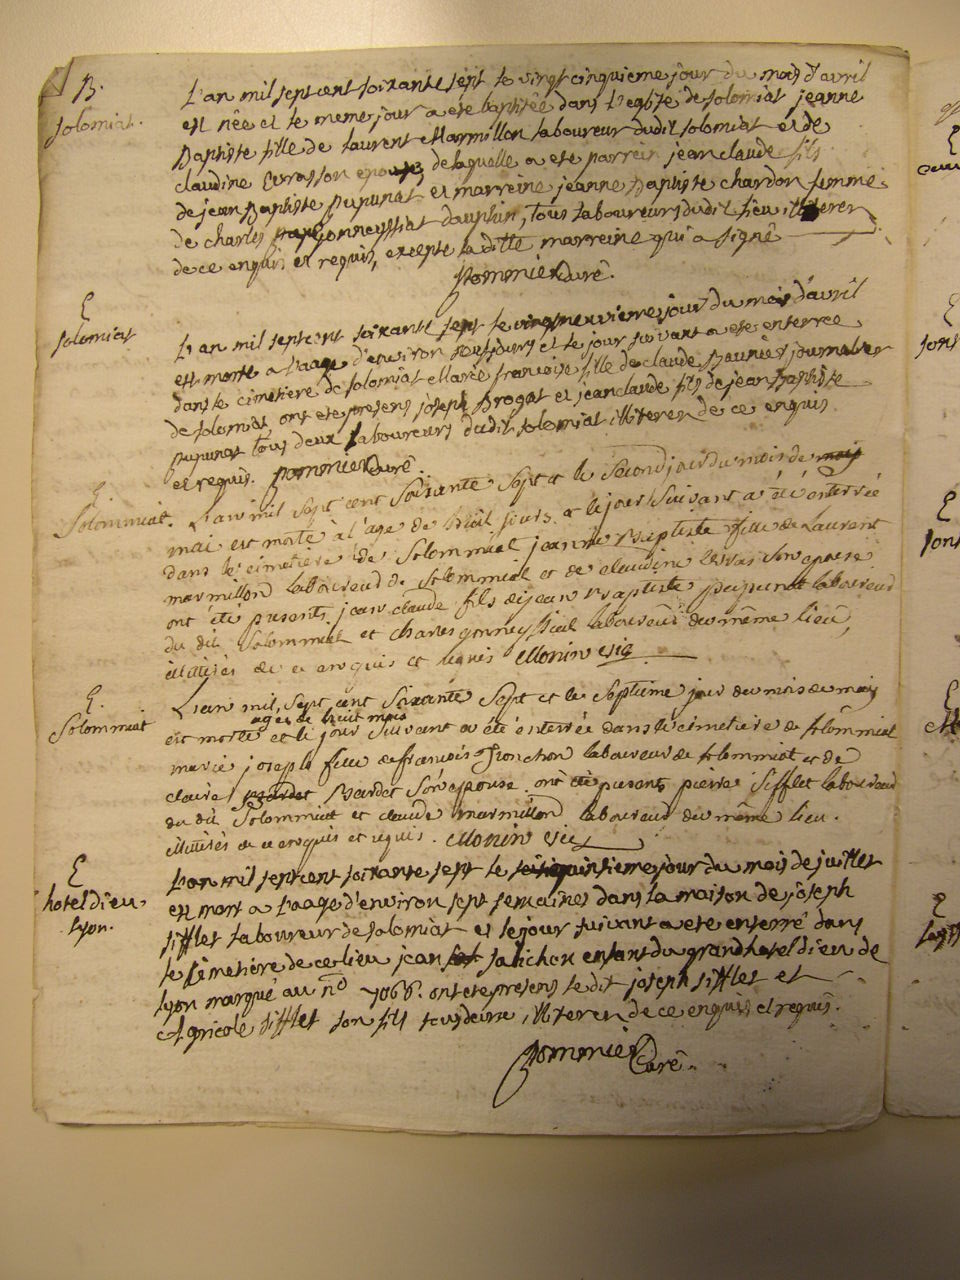 B.
solomiat.
L'an mil sept cent soixante sept le vingt cinquieme jour du mois d'avril
est née et le meme jour a eté baptisée dans l'eglise de solomiat jeanne
Baptiste fille de laurent Marmillon laboureur dudit solomiat et de
claudine epouse de laquelle a eté parrein jean claude fils
de jean Baptiste pupunat et marreine jeanne Baptiste chardon femme
de charles gonneyssiat dauphin, tous laboureurs dudit lieu illiterer
de ce enquis et requis, excepté la ditte marreine qui a signé
pommier Curé.
E
solomiat
L'an mil sept cent soixante sept le vingt neuvieme jour du mois d'avril
est morte a l'aage d'environ jours et le jour suivant a eté enterrée
dans le cimetiere de solomiat Marie francoise fille de claude journalier
de solomiat, ont eté presens joseph Brogat et jean claude fils de jean Baptiste
pupunat tous deux laboureurs dudit solomiat illiterer de ce enquis
et requis. pommier Curé.
E.
Solommiat.
L'an mil sept cent soixante sept et le second jour du mois de may
mai est morte à l'age de huit jours et le jour suivant a été enterrée
dans le cimetiere de Solommiat jeanne Baptiste fille de Laurent
marmillon laboureur de solommiat et de claudine son epouse
ont été presents jean claude fils de jean Baptiste pupunat laboureur
du dit Solommiat et charles gonneyssiat laboureur du même lieu,
illitérés de ce enquis et requis Monin vic
E.
Solommiat
L'an mil sept cent soixante sept et le septieme jour du mois de may
agée de huit mois
est morte et le jour suivant a été enterrée dans le cimetiere de solommiat
marie joseph fille de françois laboureur de solommiat et de
claire Bardet Bardet son epouse. ont été presents pierre Sifflet laboureur
du dit Solommiat et claude marmillon laboureur du même lieu.
illitérés de ce enquis et requis. Monin vic
E
hotel dieu,
Lyon.
L'an mil sept cent soixante sept le quinsieme jour du mois de juillet
est mort a l'aage d'environ sept semaines dans la maison de joseph
sifflet laboureur de solomiat et le jour suivant a eté enterré dans
le cimetiere de ce lieu jean salichon enfant du grand hotel dieu de
Lyon marqué au n° 7066. ont eté presens le dit joseph sifflet et
Agricole sifflet son fils tous deux illiterer de ce enquis et requis.
pommier
Curé.